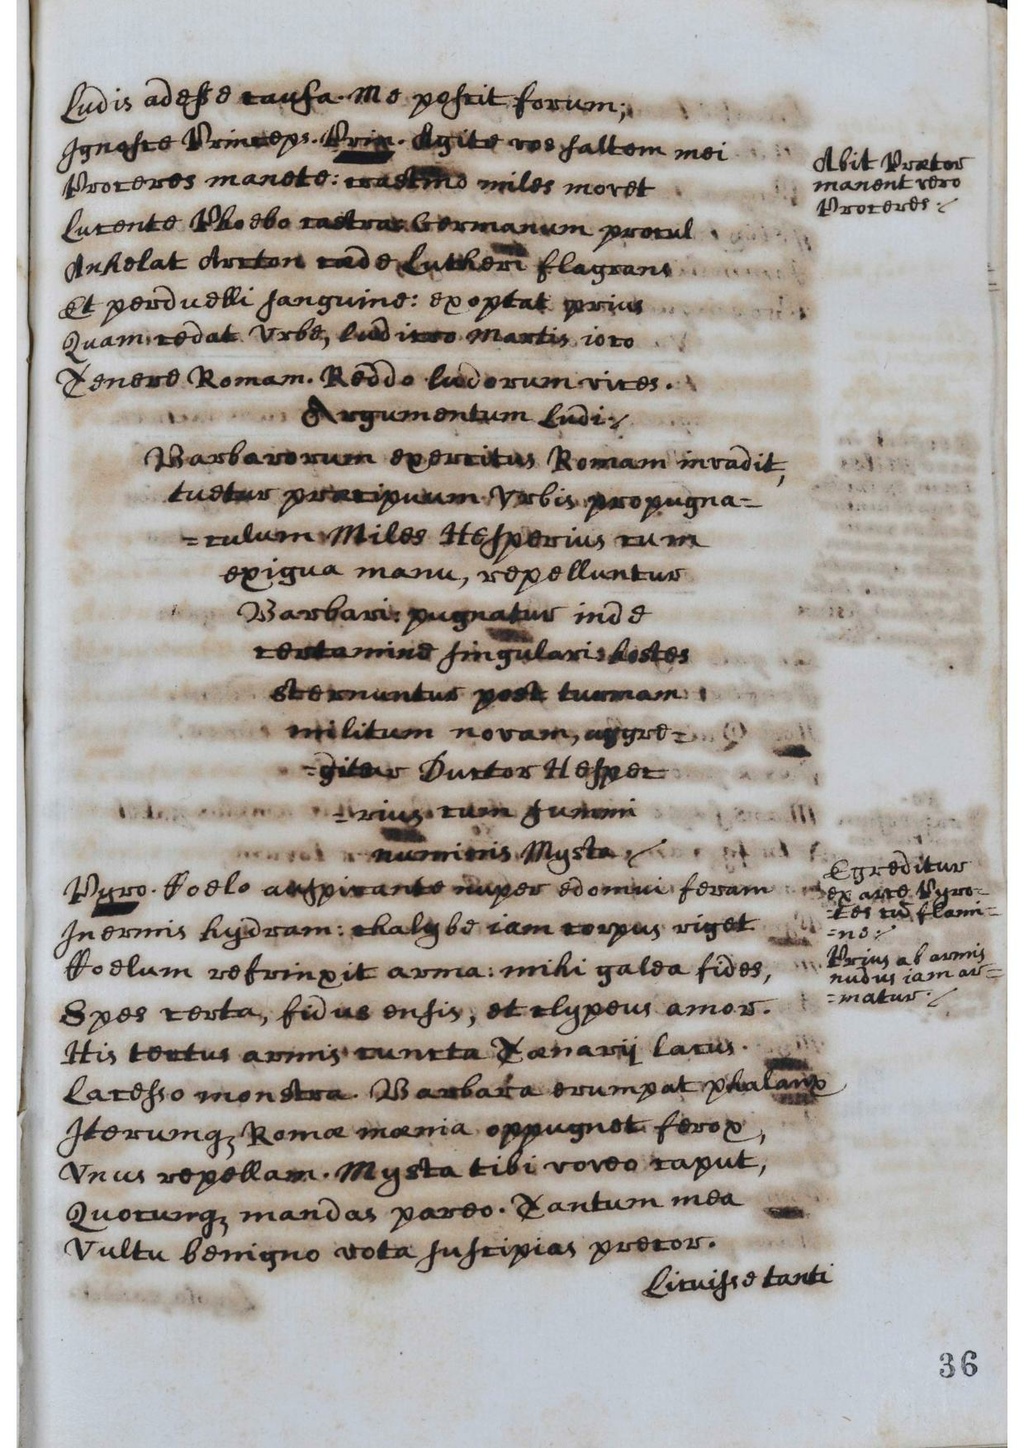 Ludis adesse causa. Me poscit forum;
Ignosce Princeps. Prin. Agite vos saltem mei
Proceres manete: crastino miles movet
Lucente Phoebo castra. Germanum procul
Anhelat Arcton cæde Lutheri flagrans
Et perduelli sanguine: exoptat prius
Quam cedat Vrbe, ludicro Martis ioco
Tenere Romam. Reddo ludorum vices.
Argumentum Ludi.
Barbarorum exercitus Romam invadit,
tuetur præcipuum Vrbis propugna=
=culum Miles Hesperius cum
exigua manu, repelluntur
Barbari: pugnatur inde
certamine singulari: hostes
sternuntur post turmam
militum novam, aggre=
=ditur Ductor Hespe
=rius cum summi
numinis Mysta.
Pyro. Coelo auspicante nuper edomui feram
Inermis hydram: chalybe iam corpus riget
Coelum refrinxit arma: mihi galea fides,
Spes certa, fidus ensis, et clypeus amor.
His tectus armis cuncta Tænarij lacus
Lacesso monstra. Barbara erumpat phalanx
Iterumq; Romæ mœnia oppugnet ferox,
Vnus repellam. Mysta tibi voveo caput,
Quocumq; mandas pareo. Tantum mea
Vultu benigno vota suscipias precor.
Licuisse tanti
Abit Prætor
manent vero
Proceres.
Egreditur
ex arce Pyro=
=tes cū flami=
=ne.
Prius ab armis
nudus iam ar=
=matur.
36